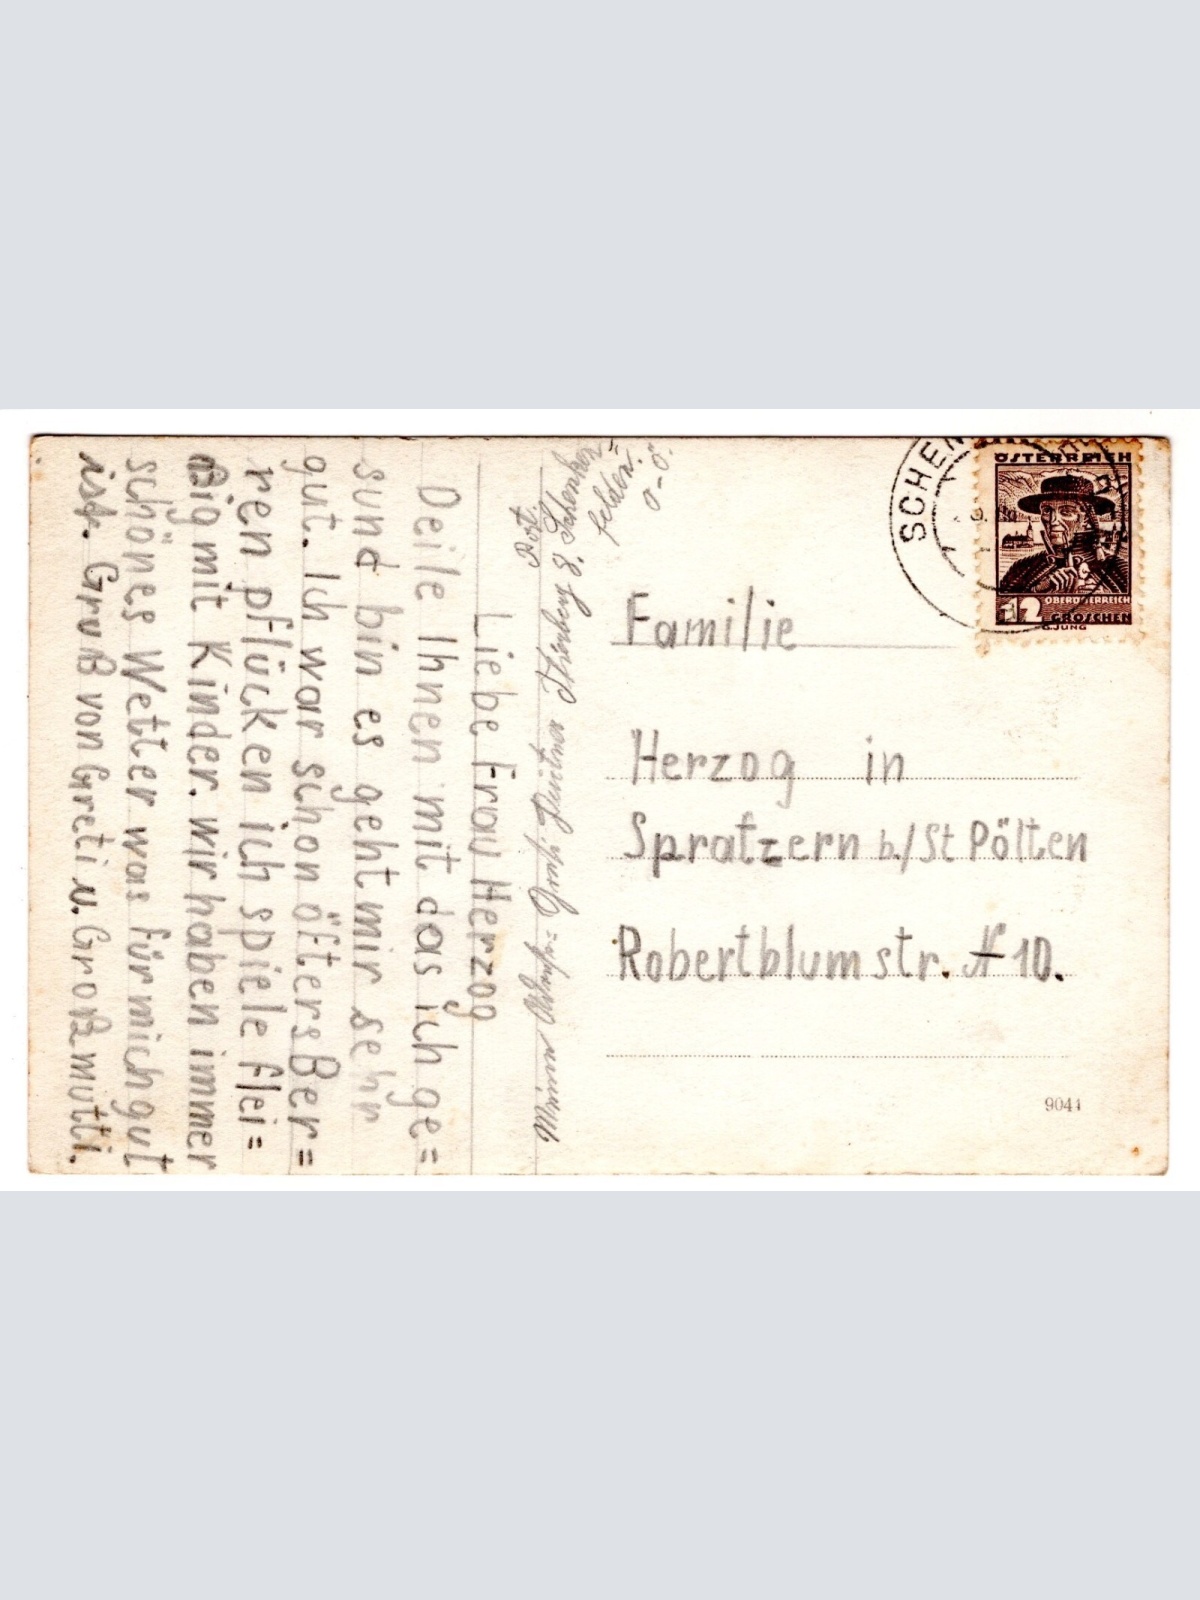 Liebe Frau Herzog
Deile Ihnen mit das ich ge=
sund bin es geht mir sehr
gut. Ich war schon öfters Ber=
ren pflücken ich spiele flei=
ßig mit Kinder. wir haben immer
schönes Wetter was für mich gut
ist. Gruß von Greti u. Großmutti.
Meine Adresse:
Post.
Schenken=
felden.
O-Ö.
Familie
Herzog in
Spratzern b./St Pölten
Robertblumstr. N 10.
9041
SCHEN
ÖSTERREICH
OBERÖSTERREICH
12 GROSCHEN
G.JUNG